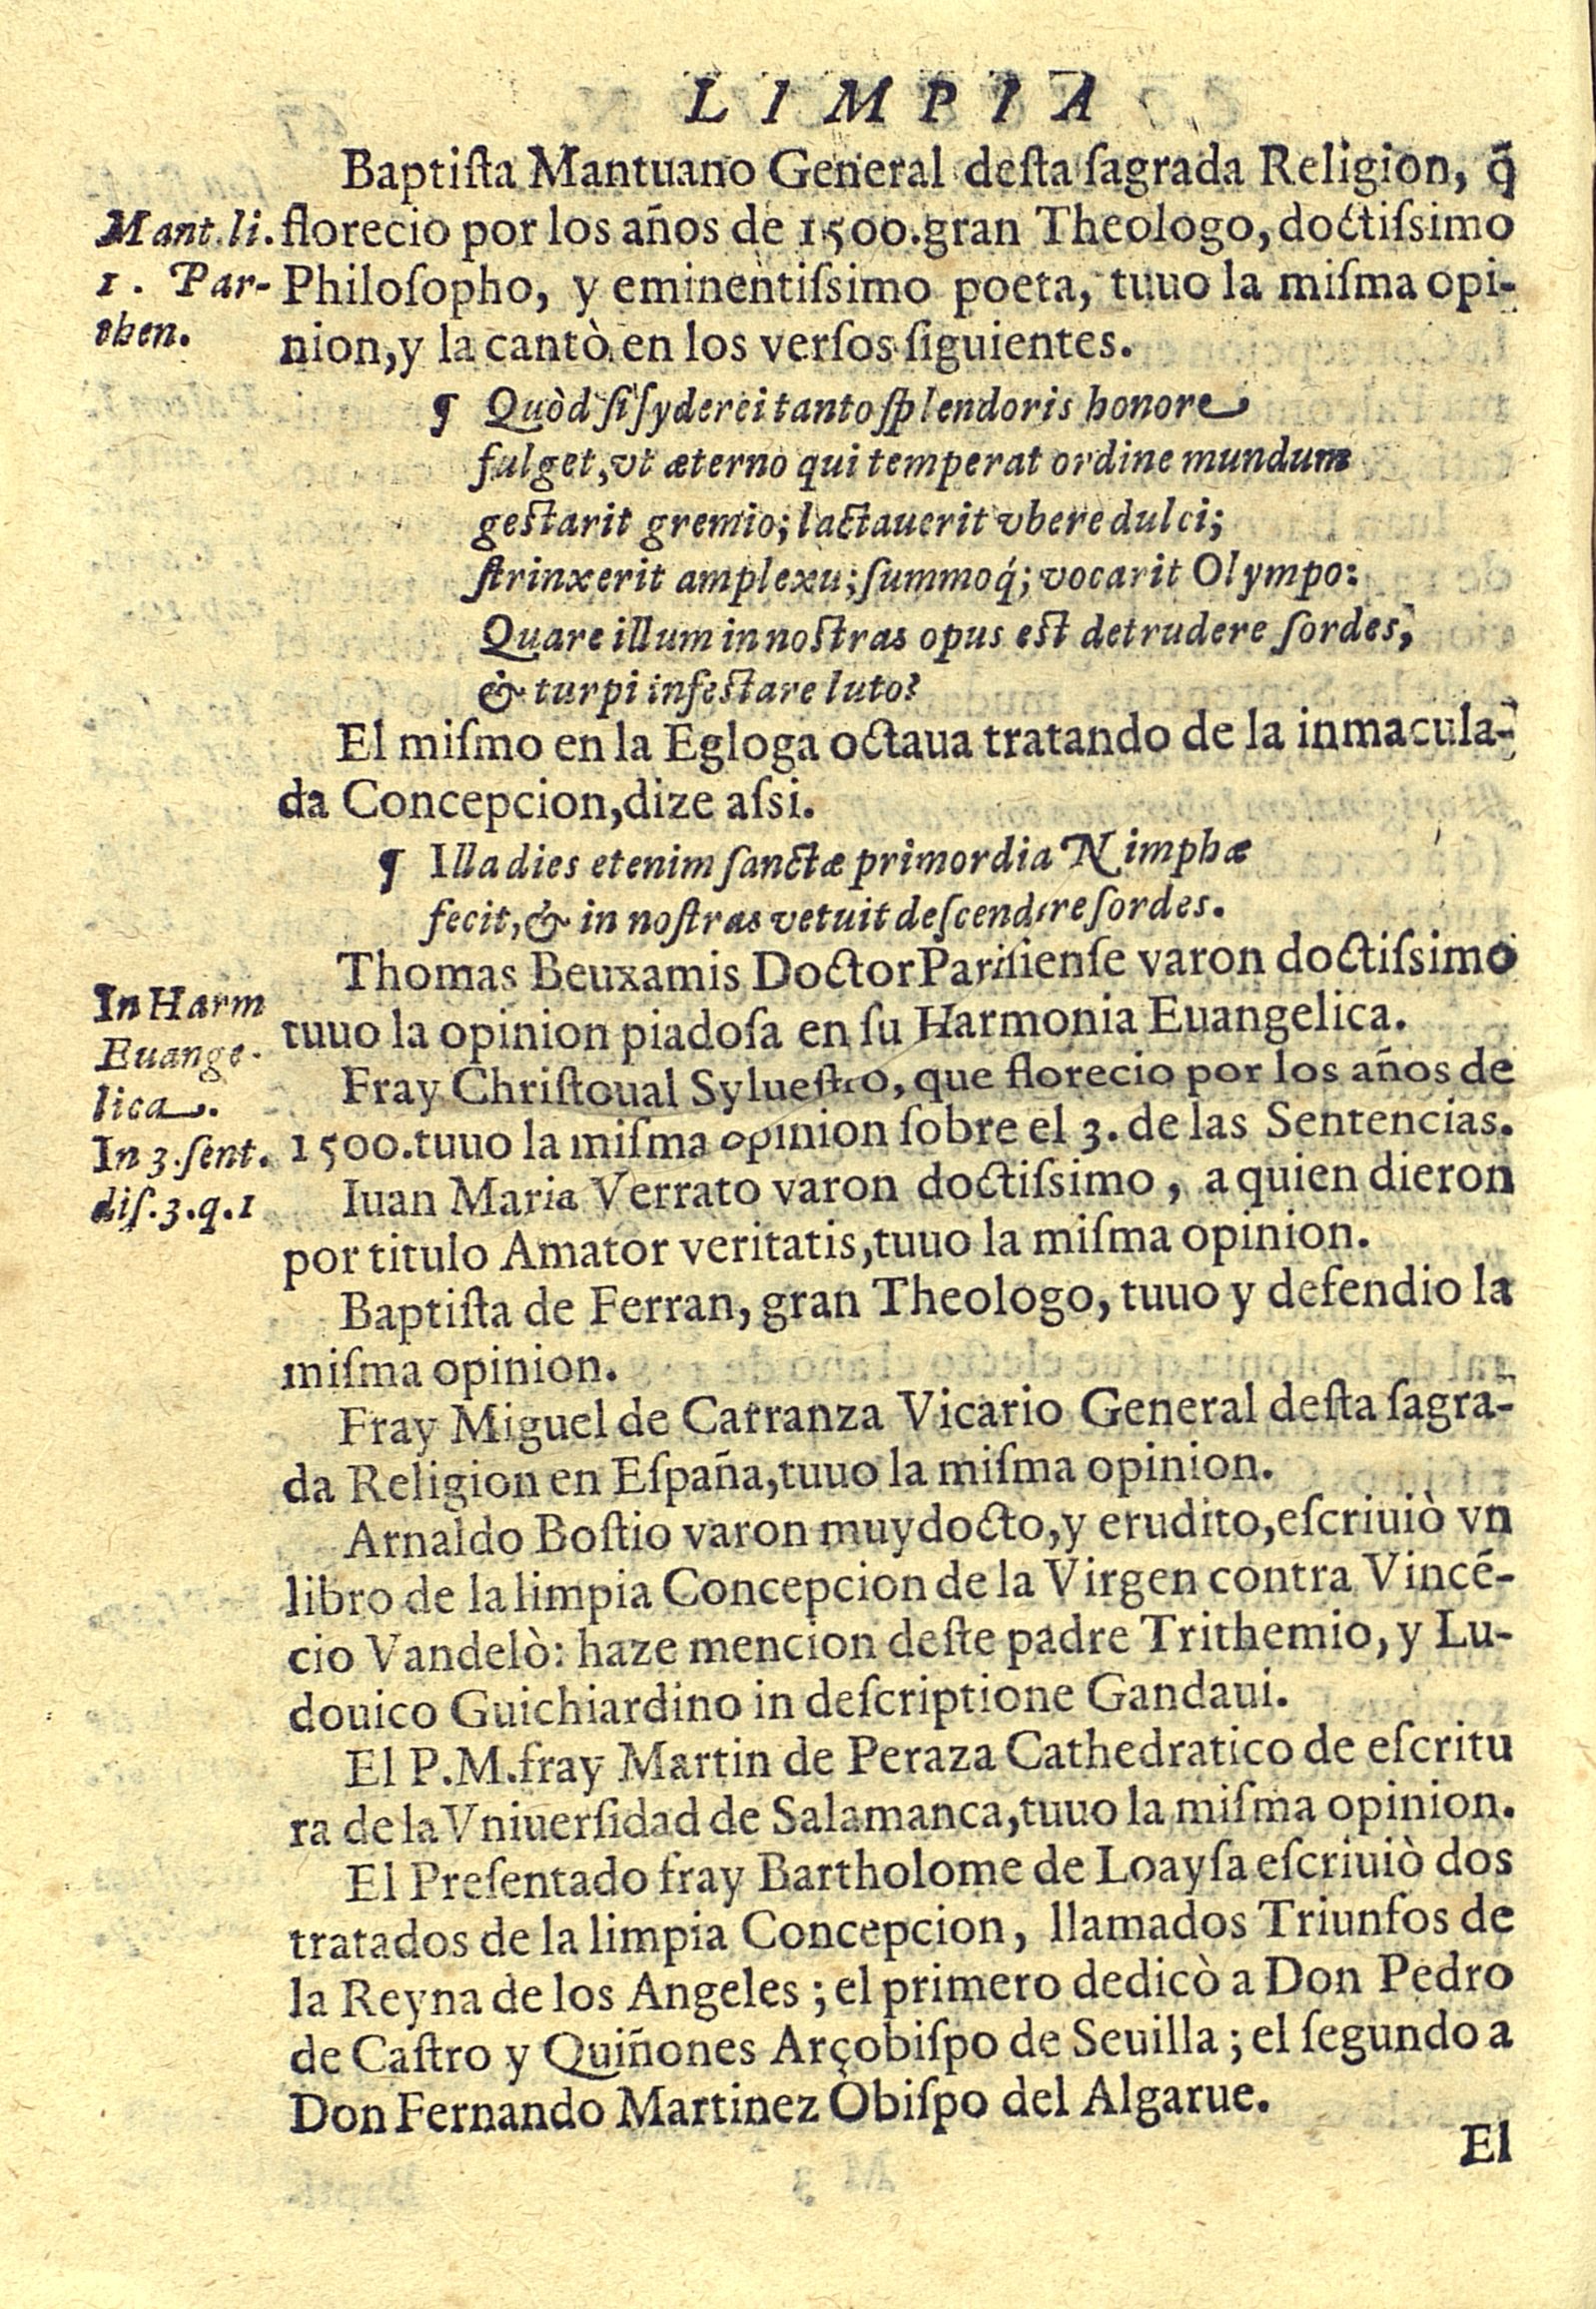 LIMPIA
Baptiſta Mantuano General deſta ſagrada Religion, q̃
florecio por los años de 1500.gran Theologo, doctiſsimo
Philoſopho, y eminentiſsimo poeta, tuuo la miſma opi-
nion,y la cantò en los verſos ſiguientes.
Mant.li.
1. Par-
then.
¶ Quòd ſi ſyderei tanto ſplendoris honore
fulget,vt æterno qui temperat ordine mundum
geſtarit gremio; lactauerit vbere dulci;
ſtrinxerit amplexu; ſummoq́; vocarit Olympo:
Quare illum in noſtras opus eſt detrudere ſordes,
& turpi infeſtare luto?
El miſmo en la Egloga octaua tratando de la inmacula-
da Concepcion,dize aſsi.
¶ Illa dies etenim ſanctæ primordia Nimphæ
fecit,& in noſtras vetuit deſcendere ſordes.
Thomas Beuxamis Doctor Pariſienſe varon doctiſsimo
tuuo la opinion piadoſa en ſu Harmonia Euangelica.
In Harm
Euange-
lica.
Fray Chriſtoual Sylueſtro, que florecio por los años de
1500.tuuo la miſma opinion ſobre el 3. de las Sentencias.
In 3.ſent.
diſ.3.q.1
Iuan Maria Verrato varon doctiſsimo, a quien dieron
por titulo Amator veritatis,tuuo la miſma opinion.
Baptiſta de Ferran, gran Theologo, tuuo y defendio la
miſma opinion.
Fray Miguel de Carranza Vicario General deſta ſagra-
da Religion en Eſpaña,tuuo la miſma opinion.
Arnaldo Boſtio varon muy docto,y erudito,eſcriuiò vn
libro de la limpia Concepcion de la Virgen contra Vincẽ-
cio Vandelò: haze mencion deſte padre Trithemio, y Lu-
douico Guichiardino in deſcriptione Gandaui.
El P.M.fray Martin de Peraza Cathedratico de eſcritu
ra de la Vniuerſidad de Salamanca,tuuo la miſma opinion.
El Preſentado fray Bartholome de Loayſa eſcriuiò dos
tratados de la limpia Concepcion, llamados Triunfos de
la Reyna de los Angeles; el primero dedicò a Don Pedro
de Caſtro y Quiñones Arçobiſpo de Seuilla; el ſegundo a
Don Fernando Martinez Obiſpo del Algarue.
El